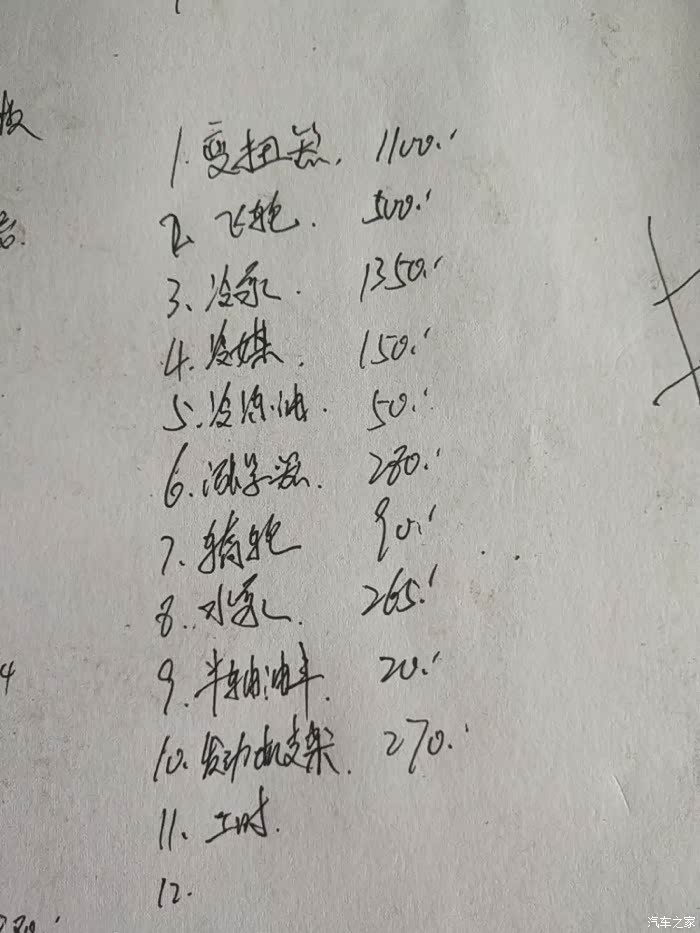 1. 变扭器. 1100.
2. 飞轮. 500.
3、冷泵. 1350.
4. 冷媒. 150.
5、冷冻油. 50.
6. 涨紧器. 280.
7. 轮 90.
8. 水泵. 265.
9. 半轴油 20.
10. 发动机支架. 270.
11、工时.
12.
汽车之家